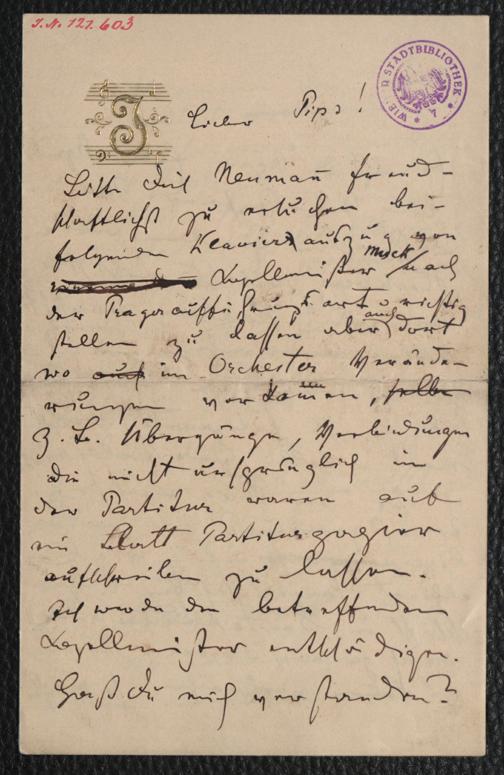 J. N. 121.603
WIENER STADTBIBLIOTHEK
J
Lieber Pips!
Bitte Dul Neumann freund-
schaftlichst zu ersuchen bei-
folgenden Klavierauszug von
Kapellmeister Muck nach
der Prager Aufführungsart u richtig
stellen zu lassen aber auch dort
wo auch im Orchester Verände-
rungen vorkamen, selbe
z. B. Übergänge, Verbindungen
die nicht ursprünglich in
der Partitur waren auf
ein Blatt Partiturpapier
aufschreiben zu lassen.
Ich werde den betreffenden
Kapellmeister entschädigen.
Hast du mich verstanden?